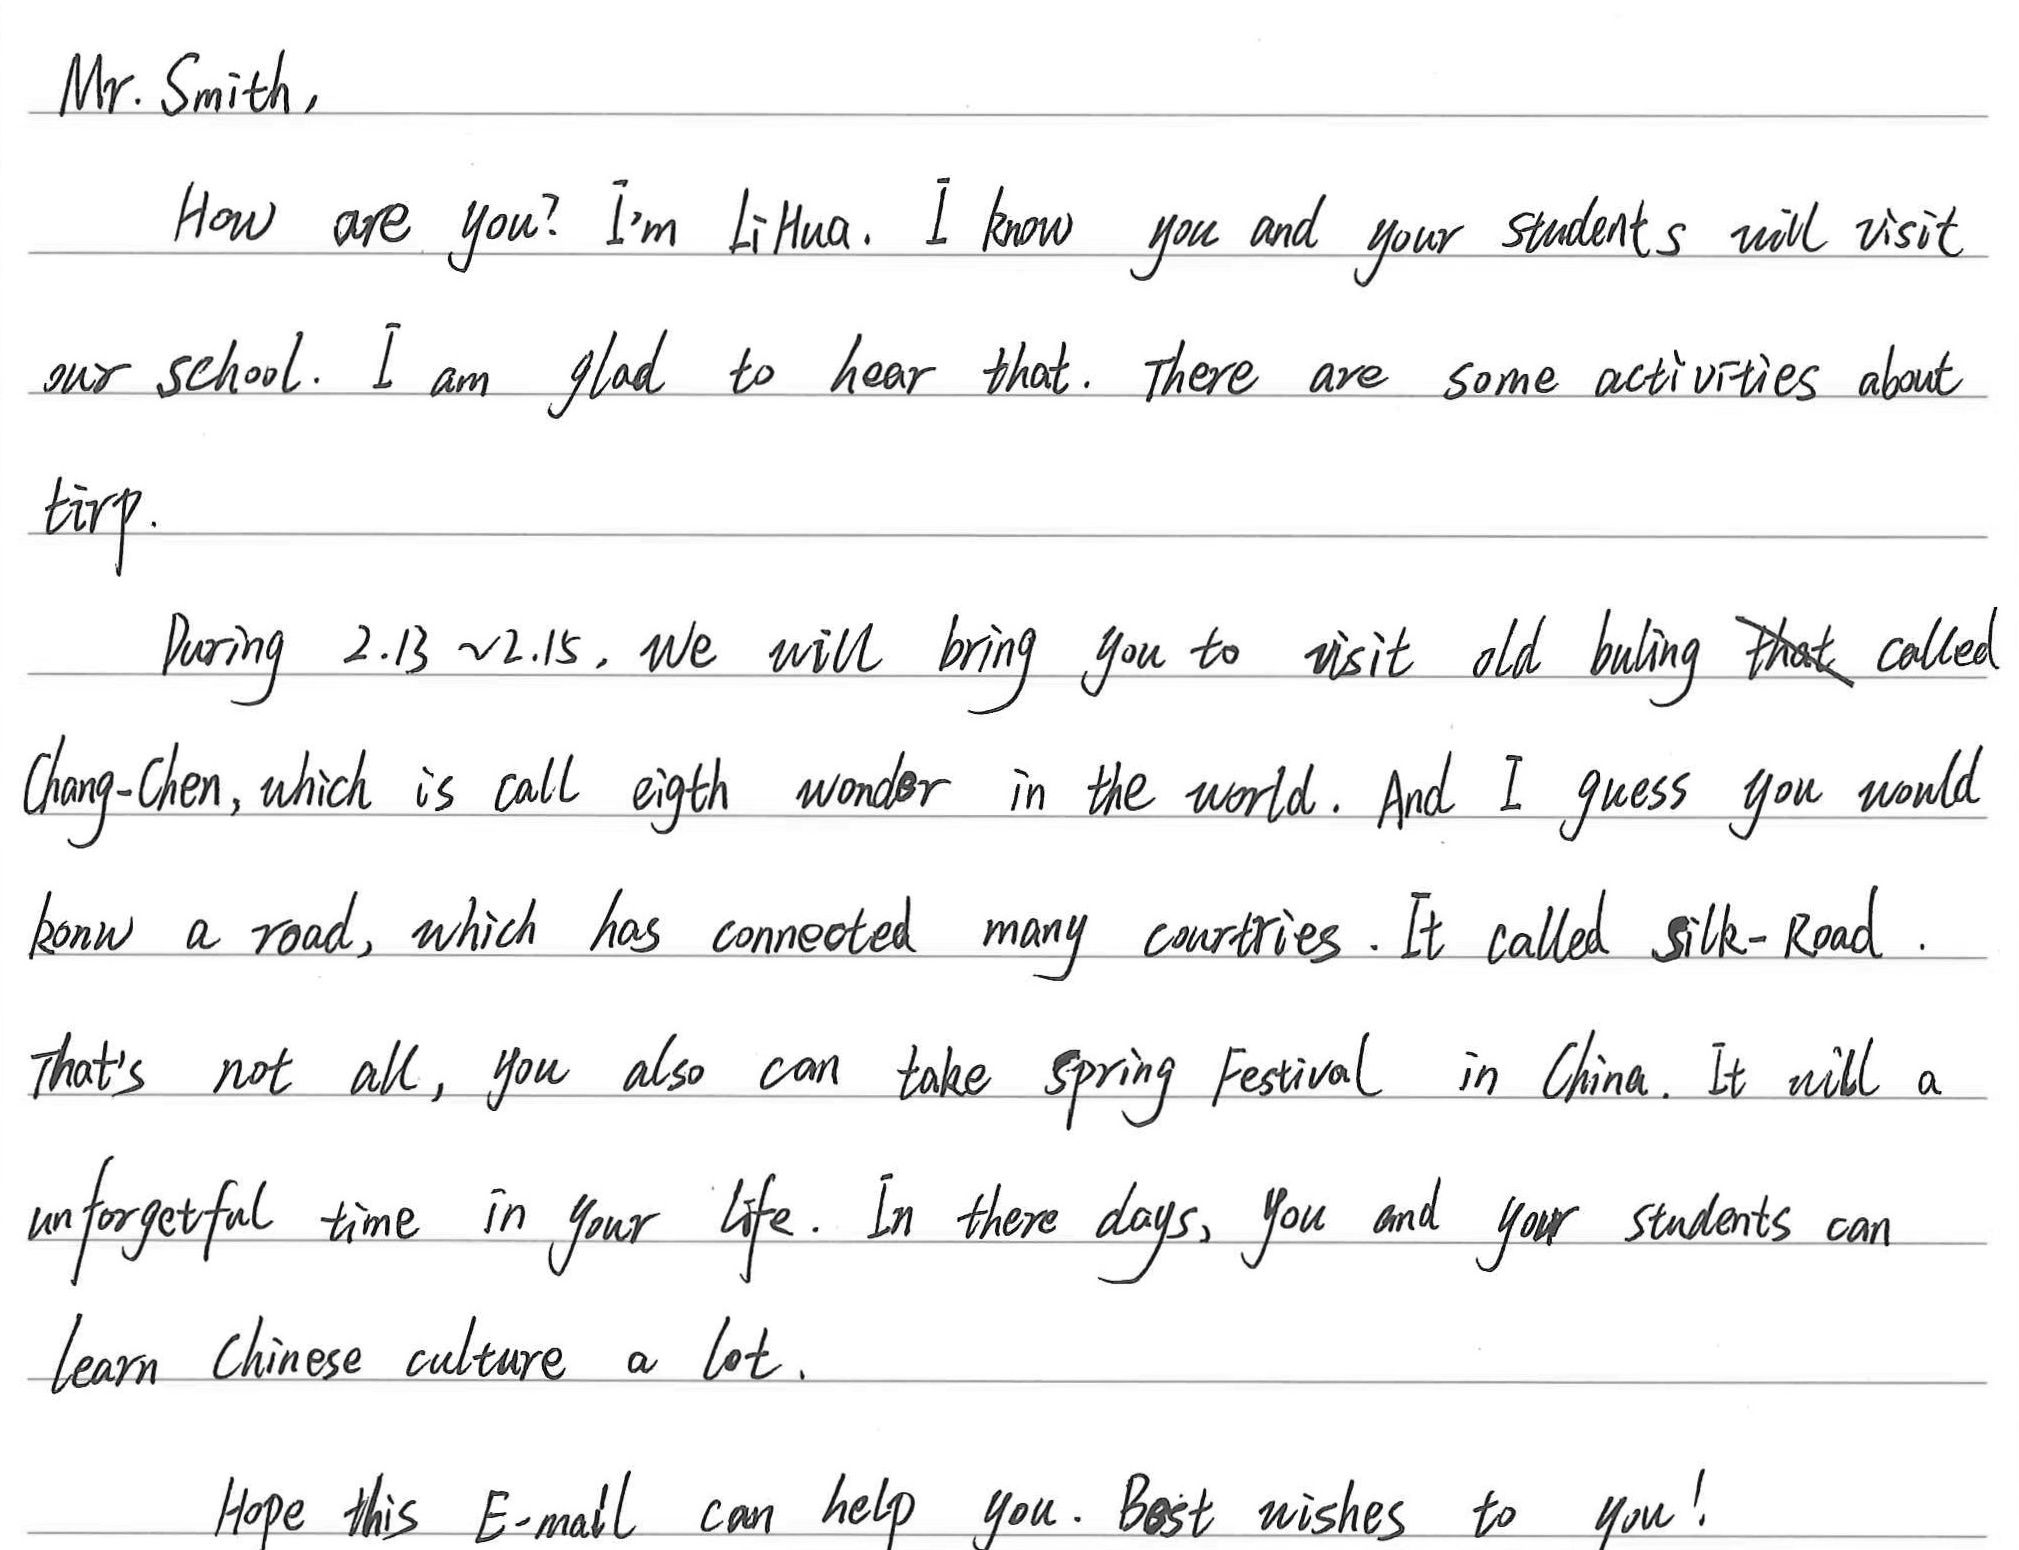 Mr. Smith,
How are you? I'm LiHua. I know you and your students will visit
our school. I am glad to hear that. There are some activities about
tirp.
During 2.13 ~2.15. We will bring you to visit old buling that called
Chang-Chen, which is call eigth wonder in the world. And I guess you would
konw a road, which has connected many courtries. It called Silk-Road.
That's not all, you also can take Spring Festival in China. It will a
unforgetful time in your life. In there days, you and your students can
learn Chinese culture a lot.
Hope this E-mail can help you. Best wishes to you!